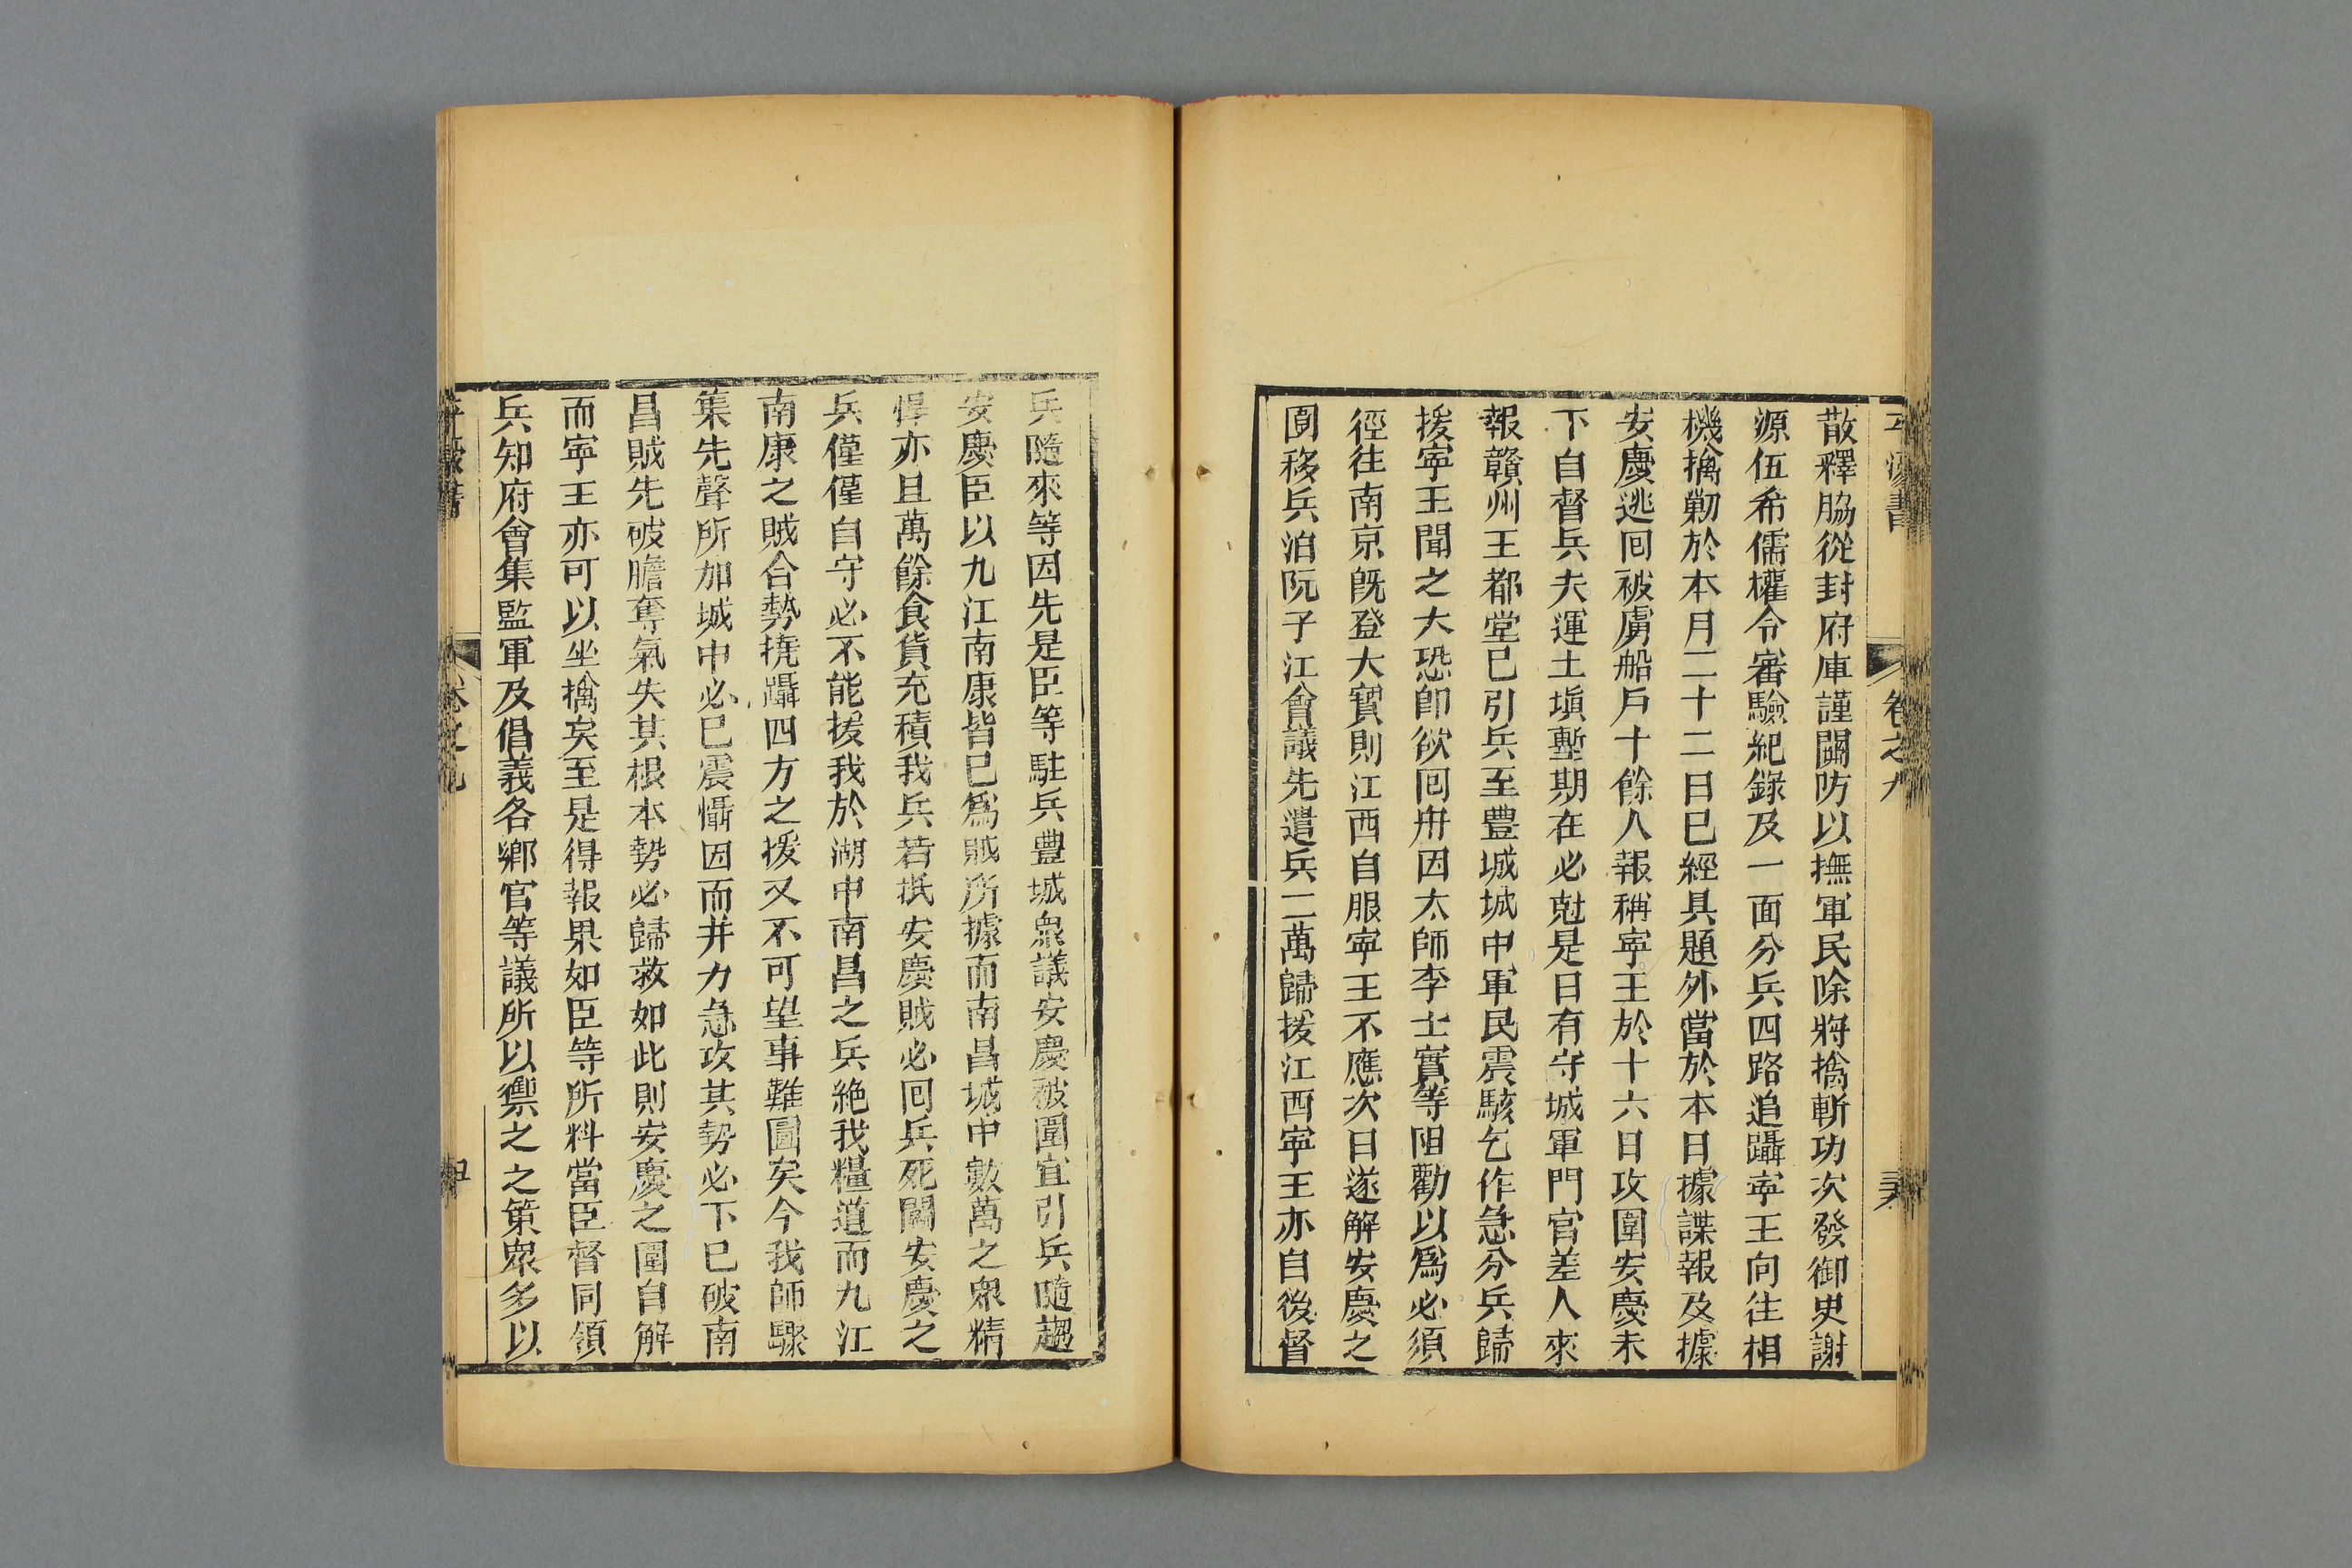 卷之九
散釋脇從封府庫謹關防以撫軍民除將擒斬功次發御史謝
源伍希儒權令審驗紀錄及一面分兵四路追躡寧王向往相
機擒勦於本月二十二日已經具題外當於本日據諜報及據
安慶逃回被虜船戶十餘人報稱寧王於十六日攻圍安慶未
下自督兵夫運土塡塹期在必尅是日有守城軍門官差人來
報贛州王都堂已引兵至豐城城中軍民震駭乞作急分兵歸
援寧王聞之大恐卽欲回舟因太師李士實等阻勸以爲必須
徑往南京旣登大寳則江西自服寧王不應次日遂解安慶之
圍移兵泊阮子江會議先遣兵二萬歸援江西寧王亦自後督
兵隨來等因先是臣等駐兵豐城衆議安慶被圍宜引兵隨趨
安慶臣以九江南康皆已爲賊所據而南昌城中數萬之衆精
悍亦且萬餘食貨充積我兵若抵安慶賊必回兵死鬭安慶之
兵僅僅自守必不能援我於湖中南昌之兵絶我糧道而九江
南康之賊合勢撓躡四方之援又不可望事難圖矣今我師驟
集先聲所加城中必已震懾因而并力急攻其勢必下已破南
昌賊先破膽奪氣失其根本勢必歸救如此則安慶之圍自解
而寧王亦可以坐擒矣至是得報果如臣等所料當臣督同領
兵知府會集監軍及倡義各鄉官等議所以禦之之策衆多以